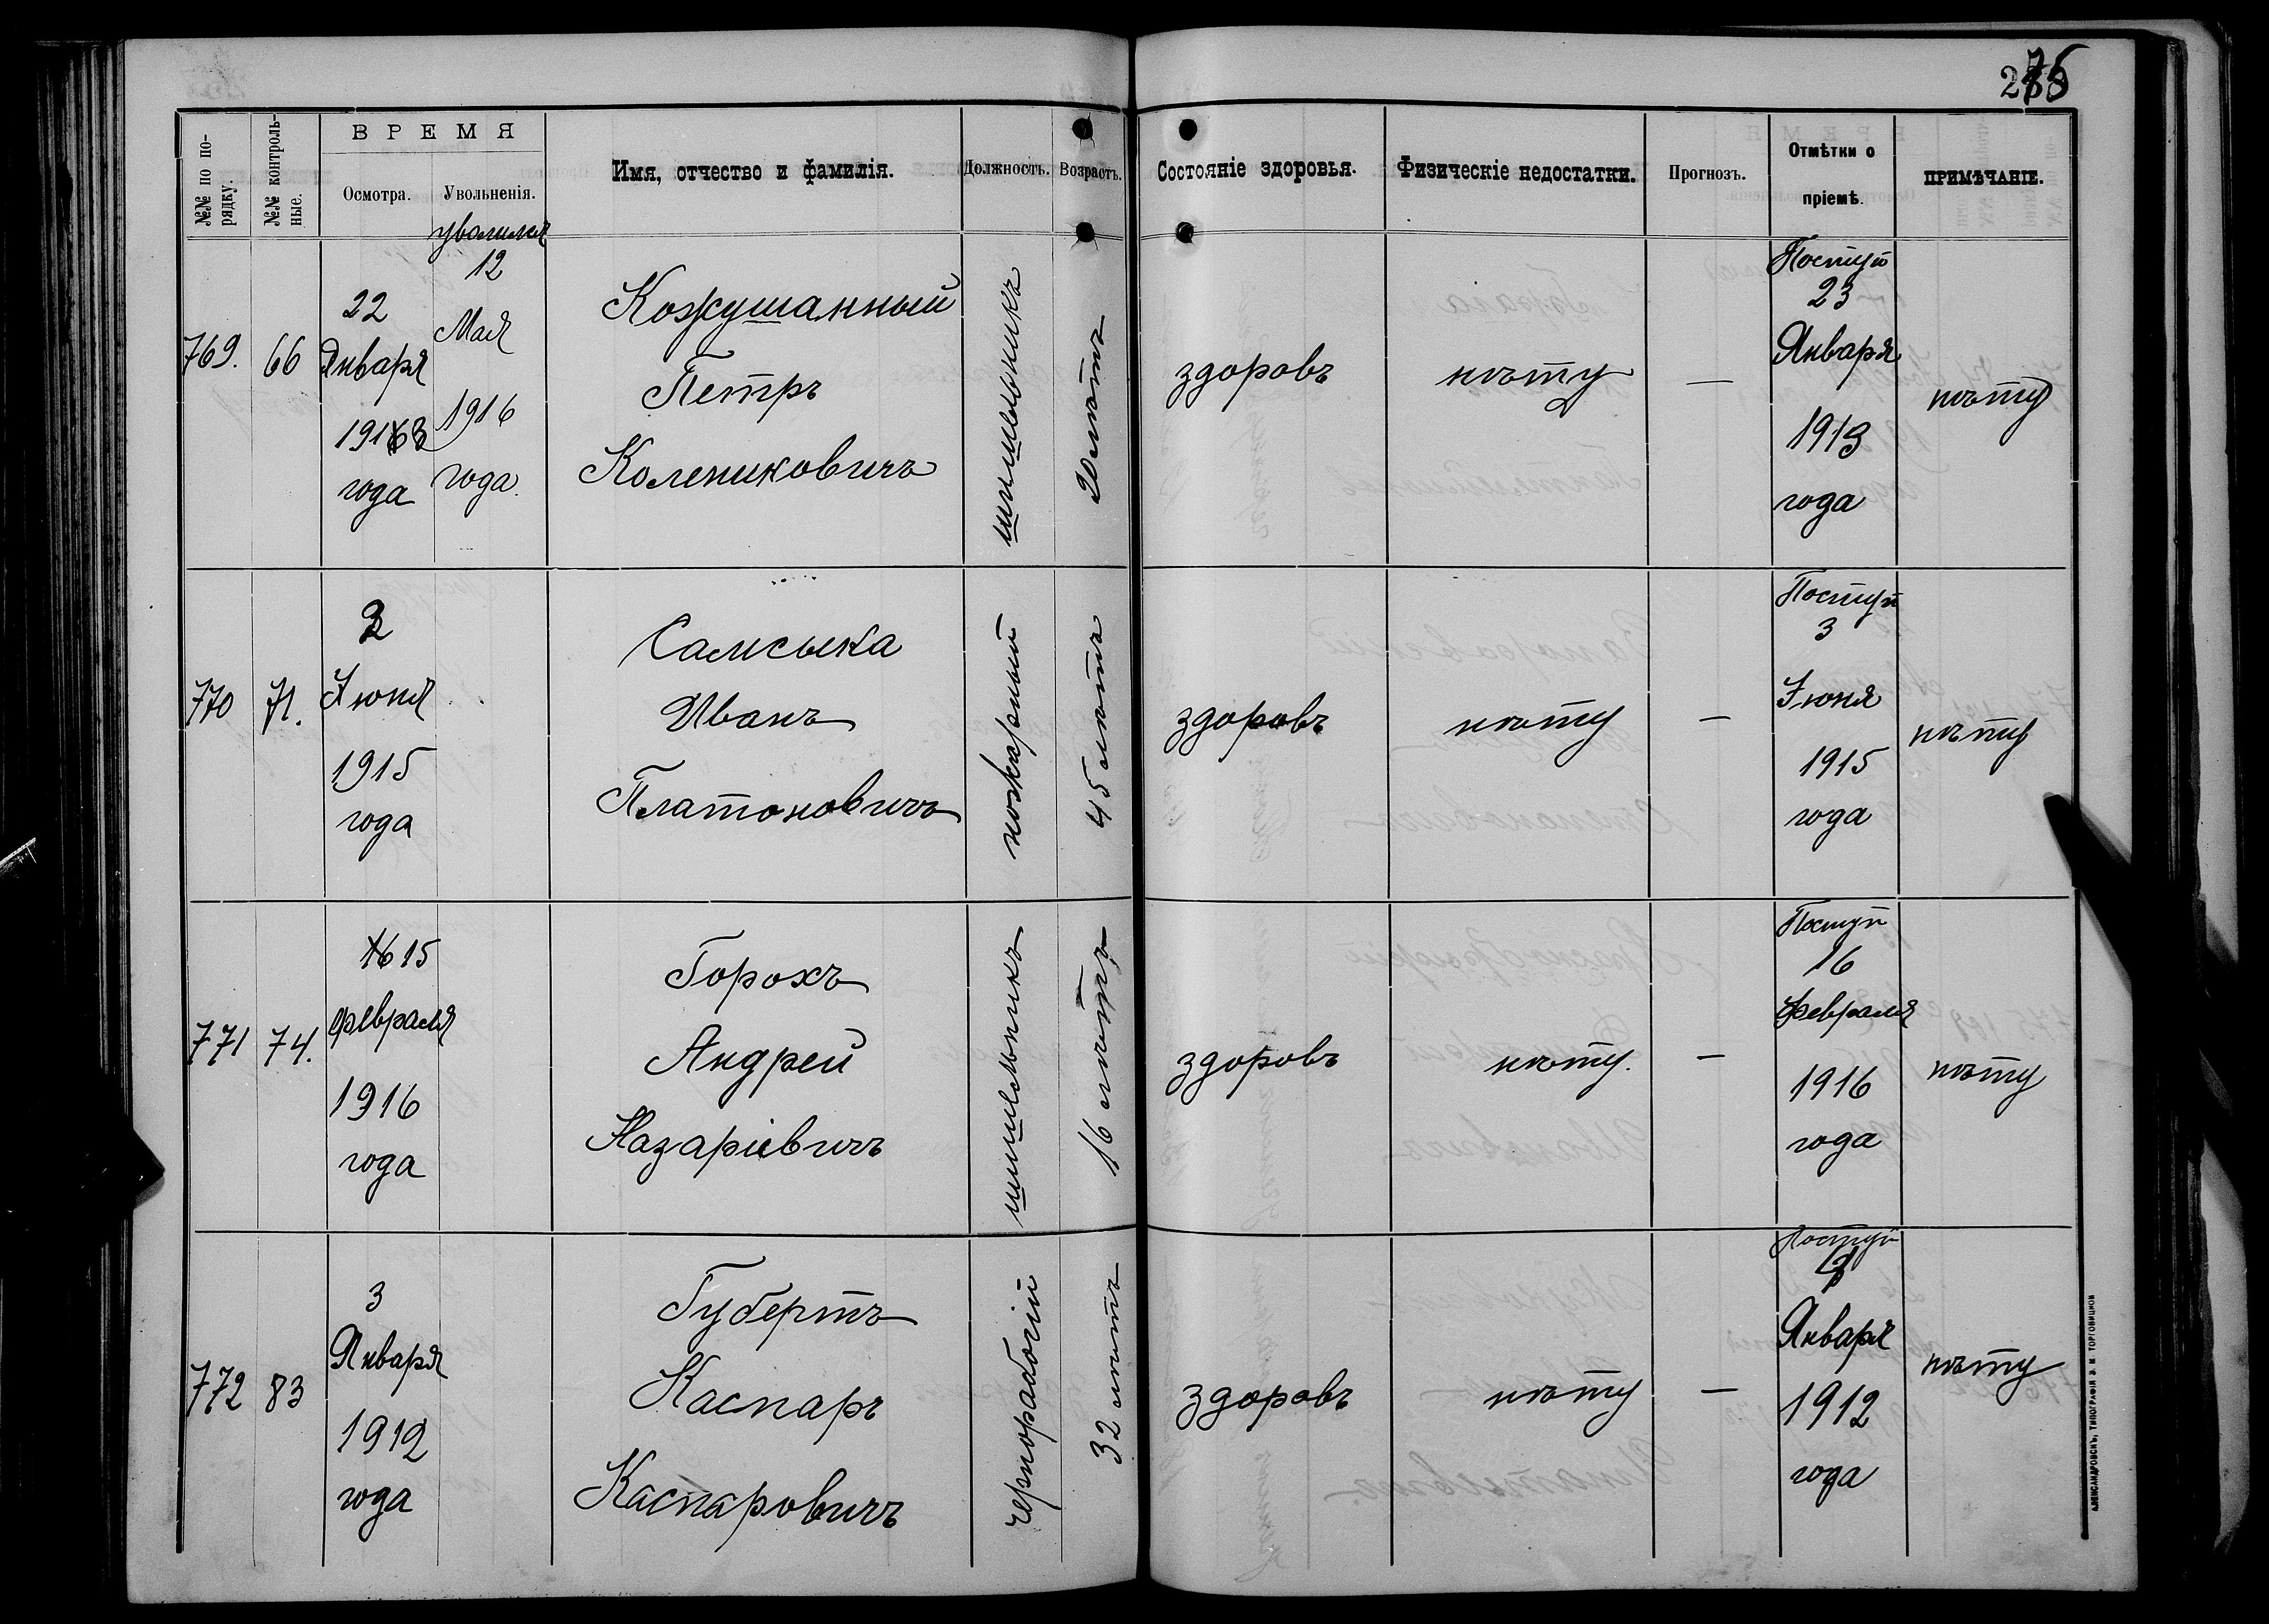 №№ по по-
рядку.
№№ контроль-
ные.
ВРЕМЯ
Осмотра.
Увольненія.
Имя, отчество и фамилія.
Должность.
Возрастъ.
Состояніе здоровья.
Физическіе недостатки.
Прогнозъ.
Отмѣтки о
пріемѣ.
ПРИМѢЧАНІЕ.
769.
66
22
Января
1913
года
уволился
12
Мая
1916
года.
Кожушанный
Петръ
Колениковичъ
шишельникъ
20 лѣтъ
здоровъ
нѣту
—
Поступ
23
Января
1913
года
нѣту
770
71.
2
Іюня
1915
года
Самсыка
Иванъ
Платоновичъ
пожарный
45 лѣтъ
здоровъ
нѣту
—
Поступ
3
Іюня
1915
года
нѣту
771
74.
15
февраля
1916
года
Горохъ
Андрей
Назаріевичъ
шишельникъ
16 лѣтъ
здоровъ
нѣту.
—
Поступ
16
февраля
1916
года
нѣту
772
83
3
Января
1912
года
Губертъ
Каспаръ
Каспаровичъ
чернорабочій
32 лѣтъ
здоровъ
нѣту
—
Поступ
Января
1912
года
нѣту
АЛЕКСАНДРОВСКЪ, ТИПОГРАФІЯ Э. М. ТОРГОВИЦКОЙ